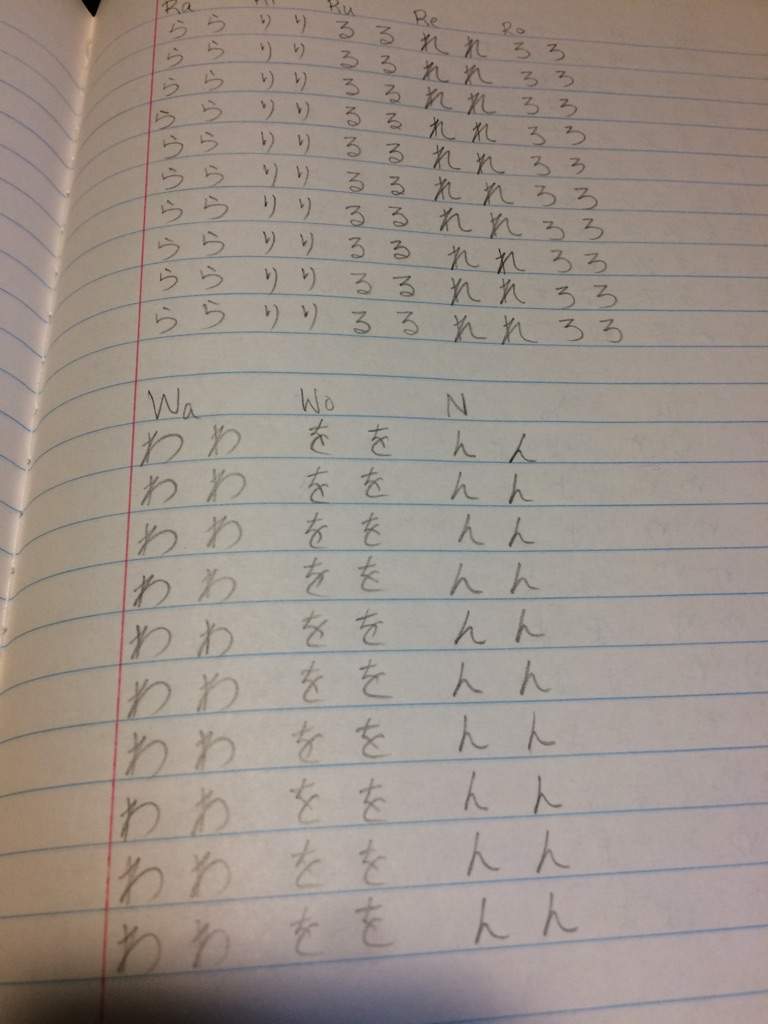 Ra Ri Ru Re Ro
ら ら り り る る れ れ ろ ろ
ら ら り り る る れ れ ろ ろ
ら ら り り る る れ れ ろ ろ
ら ら り り る る れ れ ろ ろ
ら ら り り る る れ れ ろ ろ
ら ら り り る る れ れ ろ ろ
ら ら り り る る れ れ ろ ろ
ら ら り り る る れ れ ろ ろ
ら ら り り る る れ れ ろ ろ
ら ら り り る る れ れ ろ ろ
Wa Wo N
わ わ を を ん ん
わ わ を を ん ん
わ わ を を ん ん
わ わ を を ん ん
わ わ を を ん ん
わ わ を を ん ん
わ わ を を ん ん
わ わ を を ん ん
わ わ を を ん ん
わ わ を を ん ん